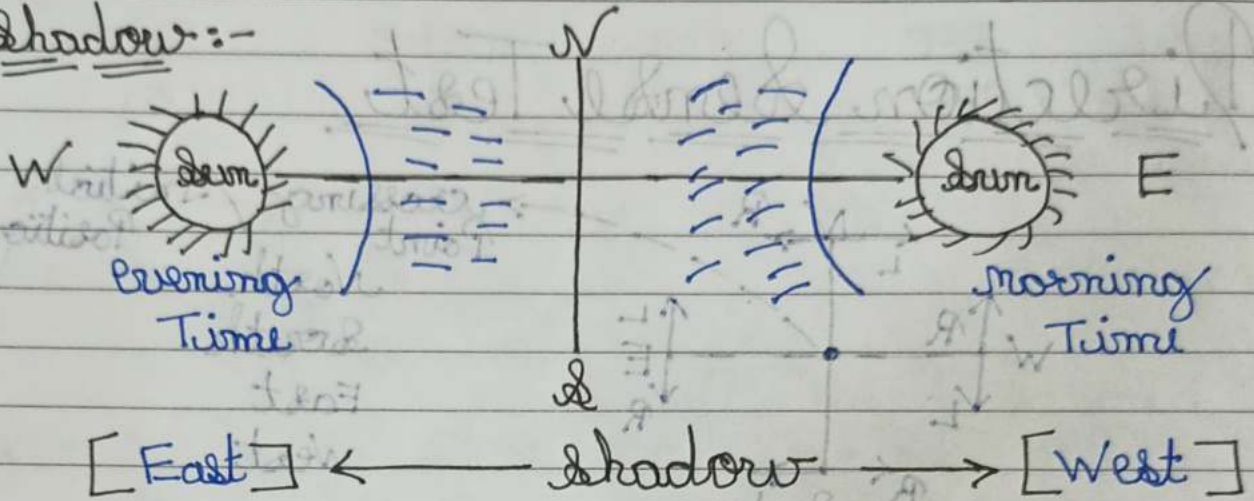 Shadow:-
N
W Sun Sun E
evening Time
morning Time
S
[East] ← Shadow → [West]